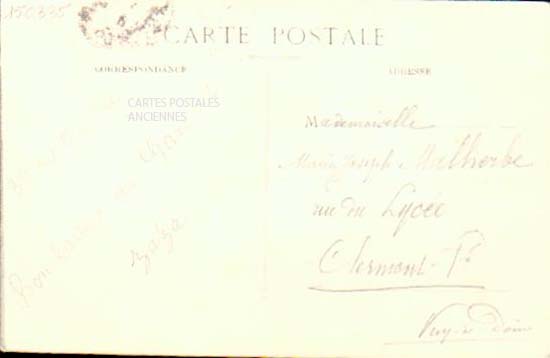 150335
CARTE POSTALE
CORRESPONDANCE
ADRESSE
CARTES POSTALES
ANCIENNES
Bon baiser
Mademoiselle
Marie Joseph Malherbe
rue du Lycée
Clermont-Fd
Puy-de-Dôme